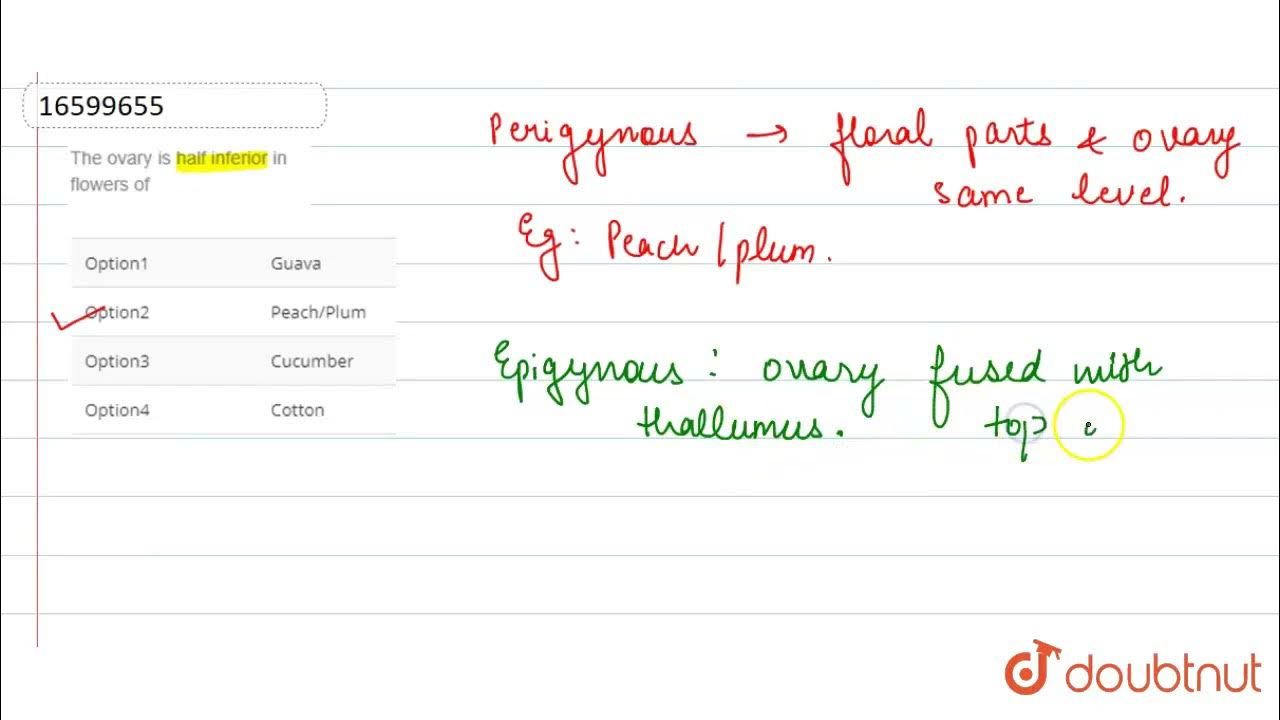 16599655
The ovary is half inferior in
flowers of
Option1 Guava
Option2 Peach/Plum
Option3 Cucumber
Option4 Cotton
Perigynous → floral parts & ovary
same level.
Eg: Peach/plum.
Epigynous: ovary fused with
thallumus. top
doubtnut